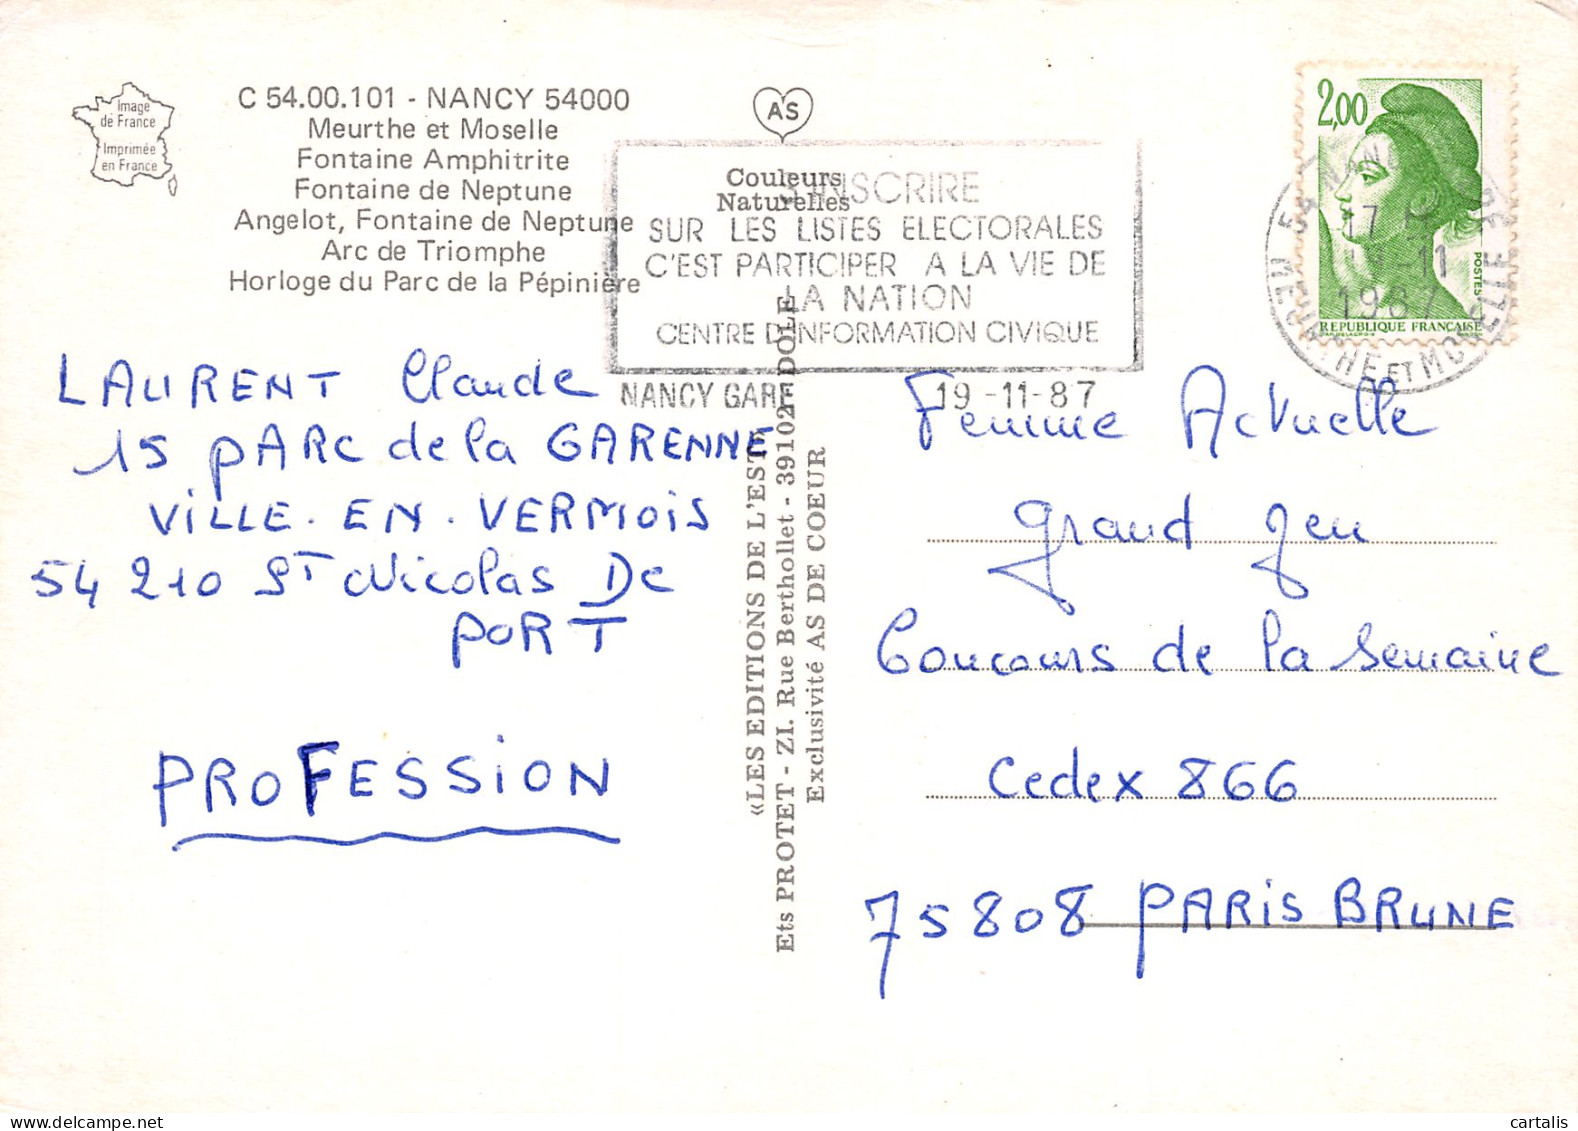 Image
de France
Imprimée
en France
C 54.00.101 - NANCY 54000
Meurthe et Moselle
Fontaine Amphitrite
Fontaine de Neptune
Angelot, Fontaine de Neptune
Arc de Triomphe
Horloge du Parc de la Pépinière
AS
Couleurs
Naturelles
S'INSCRIRE
SUR LES LISTES ELECTORALES
C'EST PARTICIPER A LA VIE DE
LA NATION
CENTRE D'INFORMATION CIVIQUE
NANCY GARE 19-11-87
2,00
POSTES
REPUBLIQUE FRANÇAISE
54 NANCY GARE
17 H
19-11
1987
MEURTHE ET MOSELLE
LAURENT Claude
15 PARC de la GARENNE
VILLE.EN.VERMOIS
54 210 ST Nicolas De
PORT
PROFESSION
«LES EDITIONS DE L'EST»
Ets PROTET - ZI. Rue Berthollet - 39102 - DOLE
Exclusivité AS DE COEUR
Femme Actuelle
grand Jeu
Concours de la Semaine
Cedex 866
75808 PARIS BRUNE
cartalis